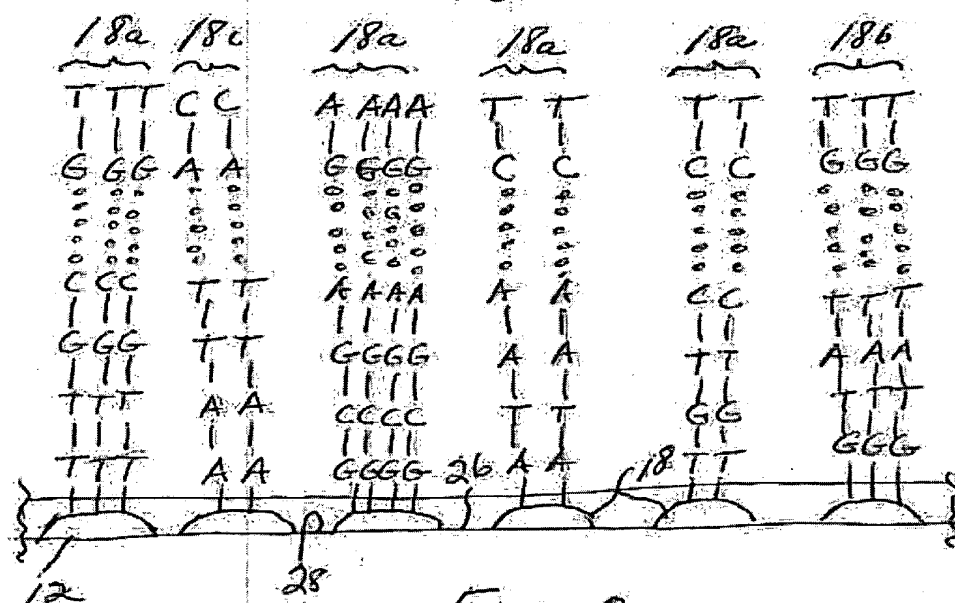 18a 18c 18a 18a 18a 18b
T T T C C A A A A T T T T T T T
G G G A A G G G G C C C C G G G
C C C T T A A A A A A C C T T T
G G G T T G G G G A A T T A A A
T T T A A C C C C T T G G T T T
T T T A A G G G G 26 A A 18 T T G G G
12 28